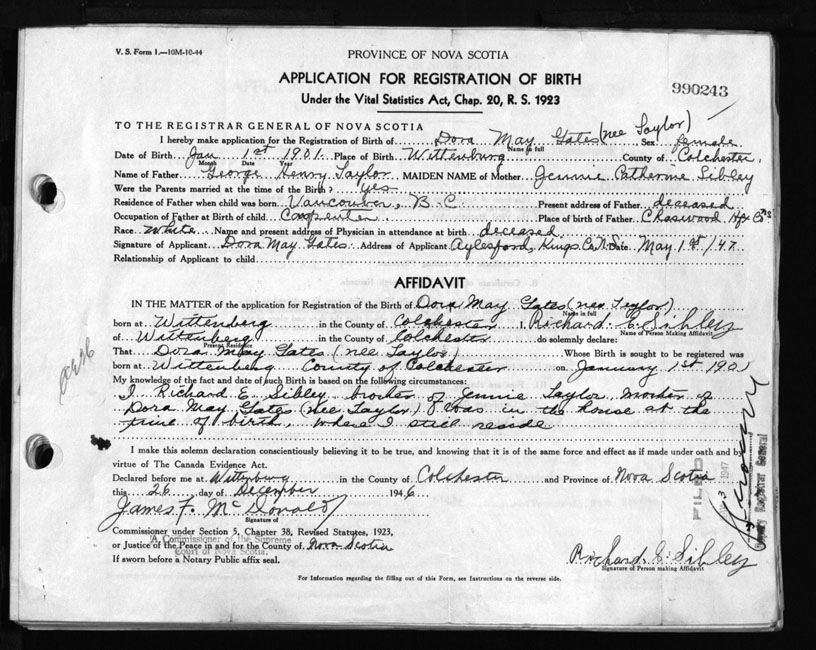 V. S. Form 1.—10M-10-44
PROVINCE OF NOVA SCOTIA
APPLICATION FOR REGISTRATION OF BIRTH
990243
Under the Vital Statistics Act, Chap. 20, R. S. 1923
TO THE REGISTRAR GENERAL OF NOVA SCOTIA
I hereby make application for the Registration of Birth of Dora May Gates (nee Taylor) Sex female
Name in full
Date of Birth Jan 1st 1901 Place of Birth Wittenburg County of Colchester.
Month Date Year
Name of Father George Henry Taylor MAIDEN NAME of Mother Jennie Catherine Sibley
Were the Parents married at the time of the Birth? yes
Residence of Father when child was born Vancouver, B.C. Present address of Father deceased
Occupation of Father at Birth of child Carpenter. Place of birth of Father Chaswood Hfx Co. N.S.
Race White Name and present address of Physician in attendance at birth deceased.
Signature of Applicant Dora May Gates Address of Applicant Aylesford, Kings Co. N.S. Date May 1st /47
Relationship of Applicant to child
AFFIDAVIT
IN THE MATTER of the application for Registration of the Birth of Dora May Gates (nee Taylor)
Name in full
born at Wittenberg in the County of Colchester I, Richard E. Sibley
Name of Person Making Affidavit
of Wittenberg in the County of Colchester do solemnly declare:
Present Residence
That Dora May Gates (nee Taylor) Whose Birth is sought to be registered was
born at Wittenberg County of Colchester on January 1st 1901
My knowledge of the fact and date of such Birth is based on the following circumstances:
I Richard E. Sibley brother of Jennie Taylor, mother of
Dora May Gates (nee Taylor) was in the house at the
time of birth, where I still reside
I make this solemn declaration conscientiously believing it to be true, and knowing that it is of the same force and effect as if made under oath and by
virtue of The Canada Evidence Act.
Declared before me at Wittenburg in the County of Colchester and Province of Nova Scotia
this 26 day of December 1946
James F. McDonald
Signature of
Commissioner under Section 5, Chapter 38, Revised Statutes, 1923,
A Commissioner of the Supreme
Court of Nova Scotia.
or Justice of the Peace in and for the County of Nova Scotia
If sworn before a Notary Public affix seal.
Richard E. Sibley
Signature of Person making Affidavit
For Information regarding the filling out of this Form, see Instructions on the reverse side.
FILED
3 1947
Deputy Registrar General